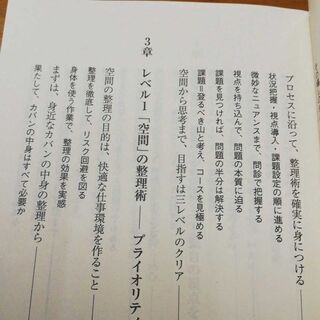 プロセスに沿って、整理術を確実に身につける
状況把握・視点導入・課題設定の順に進める
微妙なニュアンスまで、問診で把握する
視点を持ち込んで、問題の本質に迫る
課題を見つければ、問題の半分は解決する
課題＝登るべき山と考え、コースを見極める
空間から思考まで、目指すは三レベルのクリア
3章 レベル1「空間」の整理術 プライオリティ
空間の整理の目的は、快適な仕事環境を作ること
整理を徹底して、リスク回避を図る
身体を使う作業で、整理の効果を実感
まずは、身近なカバンの中身の整理から
果たして、カバンの中身はすべて必要か